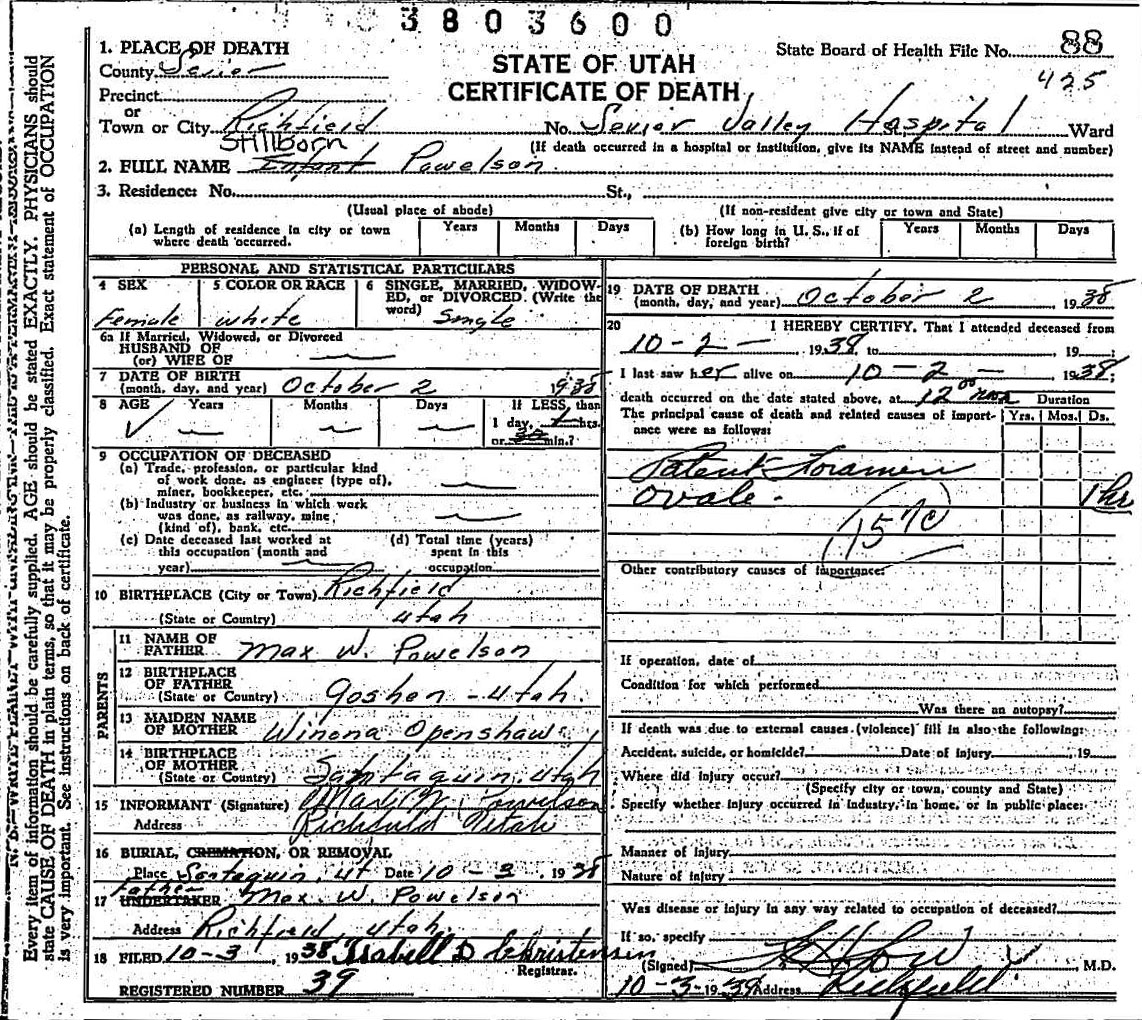 3803600
1. PLACE OF DEATH
State Board of Health File No. 88
County Sevier
STATE OF UTAH
425
Precinct
CERTIFICATE OF DEATH
or
Town or City Richfield No. Sevier Valley Hospital Ward
(If death occurred in a hospital or institution, give its NAME instead of street and number)
Stillborn
2. FULL NAME Infant Powelson
3. Residence: No. St.,
(Usual place of abode) (If non-resident give city or town and State)
(a) Length of residence in city or town where death occurred. Years Months Days
(b) How long in U. S., if of foreign birth? Years Months Days
PERSONAL AND STATISTICAL PARTICULARS
4 SEX 5 COLOR OR RACE 6 SINGLE, MARRIED, WIDOWED, or DIVORCED. (Write the word)
Female white Single
6a If Married, Widowed, or Divorced
HUSBAND OF
(or) WIFE OF
7 DATE OF BIRTH
(month, day, and year) October 2 1938
8 AGE Years Months Days If LESS than
1 day, 1 hrs.
or min.?
9 OCCUPATION OF DECEASED
(a) Trade, profession, or particular kind
of work done, as engineer (type of),
miner, bookkeeper, etc.
(b) Industry or business in which work
was done, as railway, mine
(kind of), bank, etc.
(c) Date deceased last worked at
this occupation (month and
year)
(d) Total time (years)
spent in this
occupation
10 BIRTHPLACE (City or Town) Richfield
(State or Country) Utah
PARENTS
11 NAME OF
FATHER Max W. Powelson
12 BIRTHPLACE
OF FATHER
(State or Country) Goshen - Utah
13 MAIDEN NAME
OF MOTHER Winona Openshaw
14 BIRTHPLACE
OF MOTHER
(State or Country) Santaquin, Utah
15 INFORMANT (Signature) Powelson
Address Richfield Utah
16 BURIAL, CREMATION, OR REMOVAL
Place Santaquin, Ut Date 10-3, 1938
Father
17 UNDERTAKER Max. W. Powelson
Address Richfield, Utah.
18 FILED 10-3, 1938 Isabell D Christensen
Registrar.
REGISTERED NUMBER 39
19 DATE OF DEATH
(month, day, and year) October 2 1938
20 I HEREBY CERTIFY, That I attended deceased from
10-2-, 1938, to , 19 ;
I last saw her alive on 10-2-, 1938;
death occurred on the date stated above, at 12 00 Duration
The principal cause of death and related causes of importance were as follows: Yrs. Mos. Ds.
Patent Foramen
Ovale. 1 hr
157c
Other contributory causes of importance:
If operation, date of
Condition for which performed
Was there an autopsy?
If death was due to external causes (violence) fill in also the following:
Accident, suicide, or homicide? Date of Injury , 19
Where did injury occur?
(Specify city or town, county and State)
Specify whether injury occurred in industry, in home, or in public place:
Manner of Injury
Nature of Injury
Was disease or injury in any way related to occupation of deceased?
If so, specify
(Signed) M.D.
10-3-1938 Address Richfield
Every item of information should be carefully supplied. AGE should be stated EXACTLY. PHYSICIANS should
state CAUSE OF DEATH in plain terms, so that it may be properly classified. Exact statement of OCCUPATION
is very important. See instructions on back of certificate.